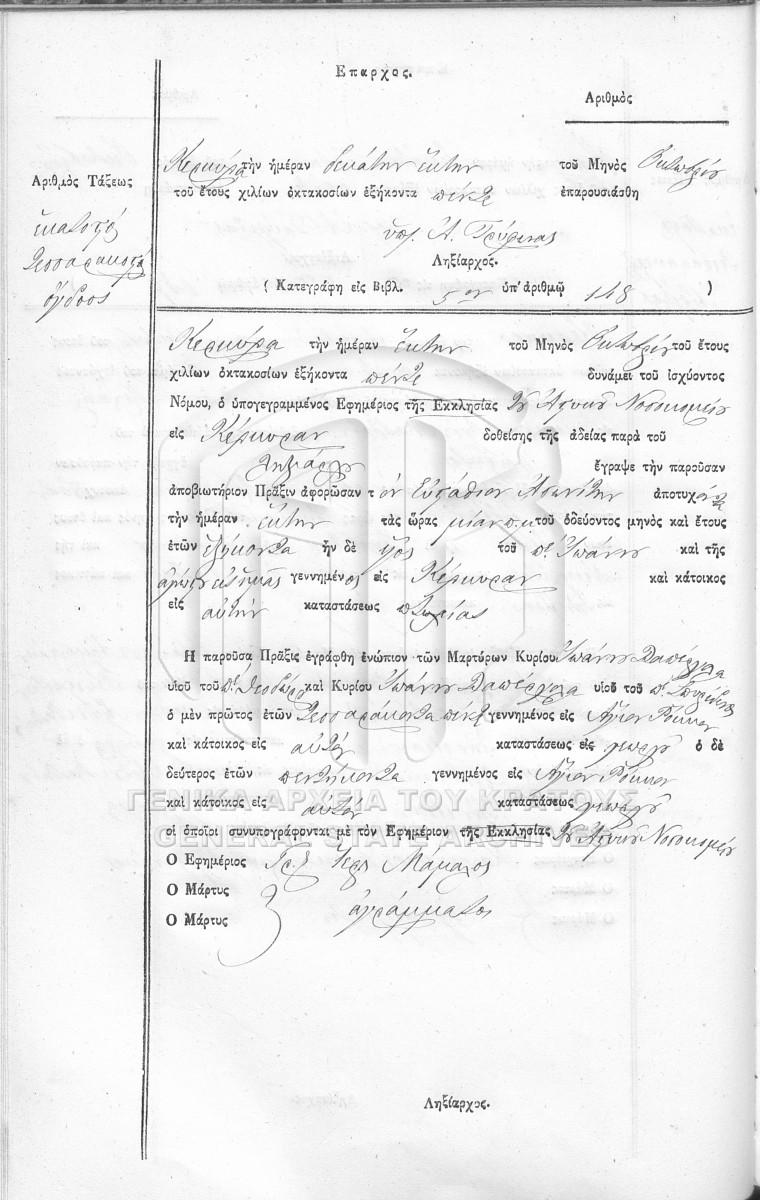 Επαρχος.
Αριθμὸς
Αριθμὸς Τάξεως
ἑκατοστὸς
τεσσαρακοστὸς
ὄγδοος
Κερκύρα τὴν ἡμέραν δεκάτην ἕκτην τοῦ Μηνὸς Ὀκτωβρίου
τοῦ ἔτους χιλίων ὀκτακοσίων ἑξήκοντα πέντε ἐπαρουσιάσθη
ὑπ. Α.
Ληξίαρχος.
( Κατεγράφη εἰς Βιβλ. 5ον ὑπ' ἀριθμῷ 148 )
Κερκύρα τὴν ἡμέραν ἕκτην τοῦ Μηνὸς Ὀκτωβρίου τοῦ ἔτους
χιλίων ὀκτακοσίων ἑξήκοντα πέντε δυνάμει τοῦ ἰσχύοντος
Νόμου, ὁ ὑπογεγραμμένος Εφημέριος τῆς Εκκλησίας τοῦ Νοσοκομείου
εἰς Κέρκυραν δοθείσης τῆς ἀδείας παρὰ τοῦ
Ληξιάρχου ἔγραψε τὴν παροῦσαν
ἀποβιωτήριον Πρᾶξιν ἀφορῶσαν τ ὸν Εὐστάθιον ἀποτυχόντα
τὴν ἡμέραν ἕκτην τὰς ὥρας μίαν π.μ. τοῦ ὁδεύοντος μηνὸς καὶ ἔτους
ἐτῶν ἑξήκοντα ἦν δὲ υἱὸς τοῦ π. Ἰωάννου καὶ τῆς
γεννημένος εἰς Κέρκυραν καὶ κάτοικος
εἰς αὐτὴν καταστάσεως πτωχίας
Η παροῦσα Πρᾶξις ἐγράφθη ἐνώπιον τῶν Μαρτύρων Κυρίου Ἰωάννου Δαπέργολα
υἱοῦ τοῦ π. Θεοδώρου καὶ Κυρίου Ἰωάννου Δαπέργολα υἱοῦ τοῦ π. Σπυρίδωνος
ὁ μὲν πρῶτος ἐτῶν τεσσαράκοντα πέντε γεννημένος εἰς Ἅγιον Ρόκκον
καὶ κάτοικος εἰς αὐτόν καταστάσεως εἰς γεωργ ὁ δὲ
δεύτερος ἐτῶν πεντήκοντα γεννημένος εἰς Ἅγιον Ρόκκον
καὶ κάτοικος εἰς αὐτόν καταστάσεως γεωργ
οἱ ὁποῖοι συνυπογράφονται μὲ τὸν Εφημέριον τῆς Εκκλησίας τοῦ Νοσοκομείου
Ο Εφημέριος Μάμαλος
Ο Μάρτυς
Ο Μάρτυς ἀγράμματοι
Ληξίαρχος.
ΓΕΝΙΚΑ ΑΡΧΕΙΑ ΤΟΥ ΚΡΑΤΟΥΣ
GENERAL STATE ARCHIVES